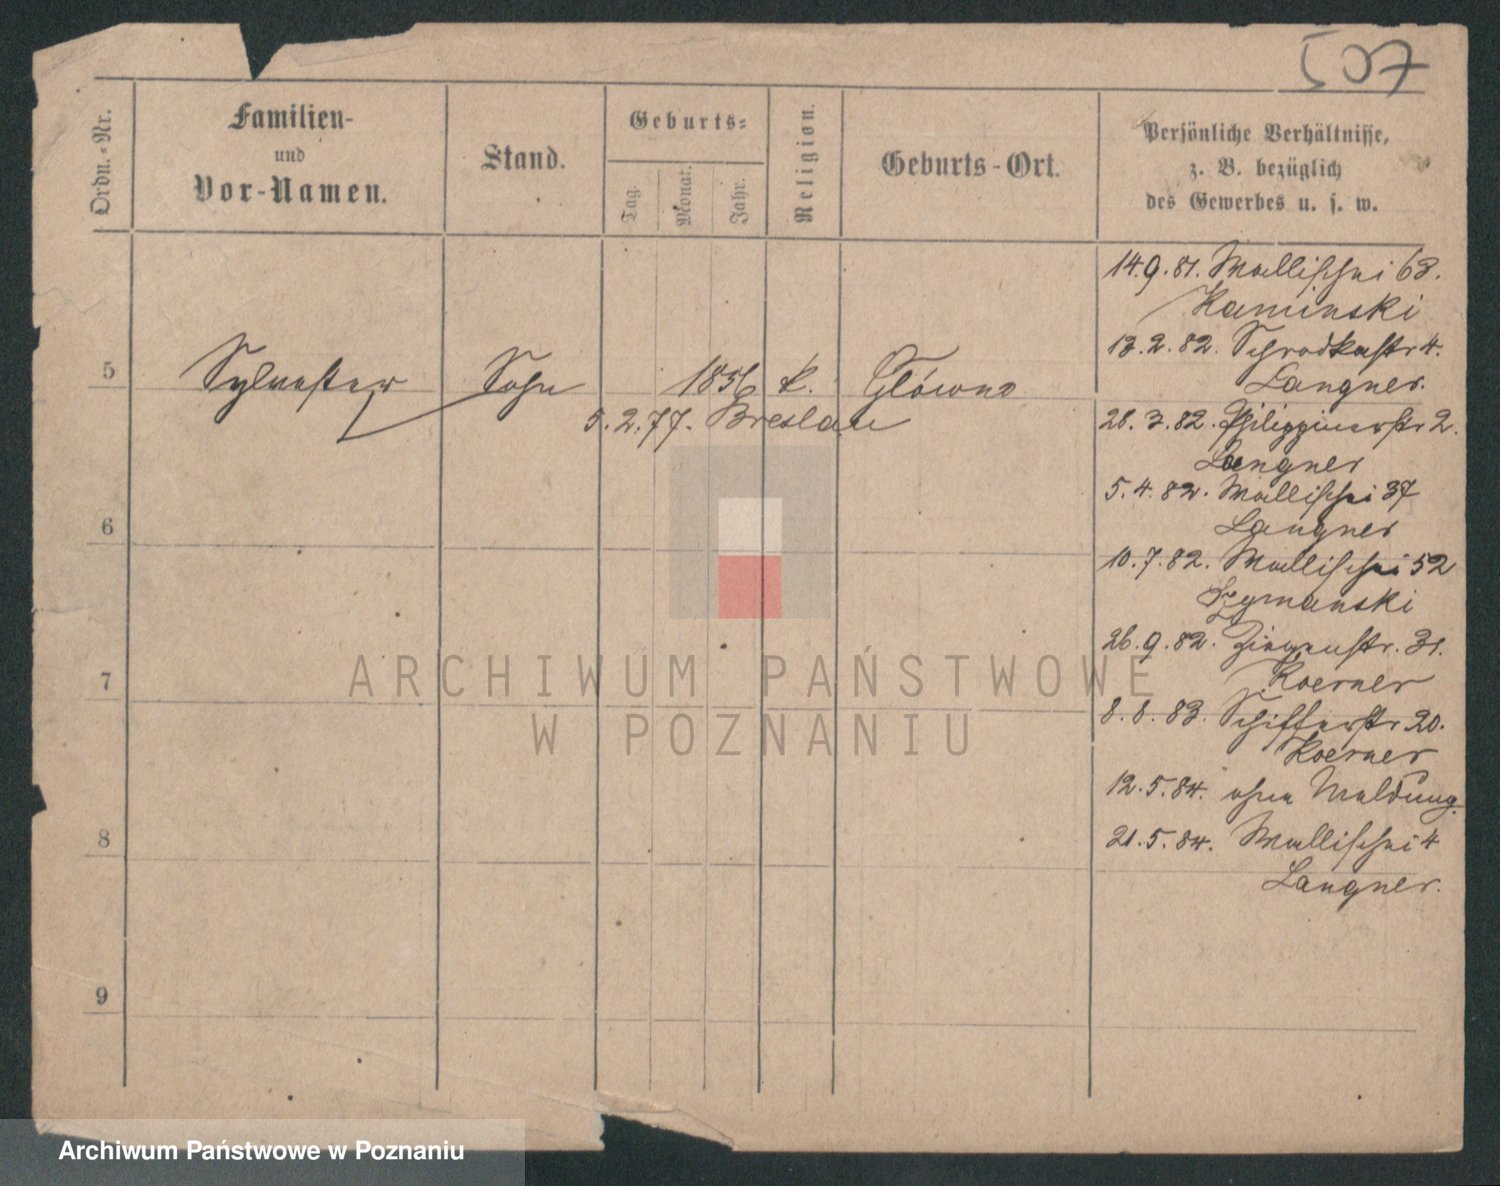 507
Ordn.-Nr.
Familien-
und
Vor-Namen.
Stand.
Geburts-
Tag.
Monat.
Jahr.
Religion.
Geburts-Ort.
Persönliche Verhältnisse,
z. B. bezüglich
des Gewerbes u. s. w.
5
Sylvester Sohn 1856 k. Główno
5.2.77. Breslau
6
7
8
9
14.9.81. Wallischei 63.
Kaminski
13.2.82. Schrodkastr 4.
Langner.
28.3.82. Philippinerstr 2.
Langner
5.4.82. Wallischei 37
Langner
10.7.82. Wallischei 52
Szymanski
26.9.82. Ziegenstr. 31.
Koerner
8.8.83. Schifferstr 20.
Koerner
12.5.84. ohne Meldung.
21.5.84. Wallischei 4
Langner.
ARCHIWUM PAŃSTWOWE
W POZNANIU
Archiwum Państwowe w Poznaniu